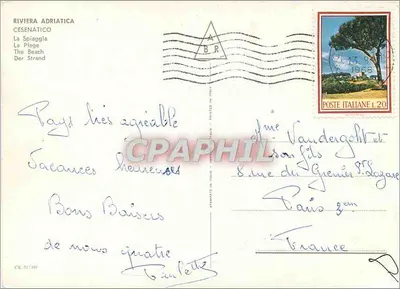 RIVIERA ADRIATICA
CESENATICO
La Spiaggia
La Plage
The Beach
Der Strand
A
B R
POSTE ITALIANE L.20
Pays très agréable
Vacances heureuses
Bons Baisers
de nous quatre
Paulette
CPAPHIL
Mme Vandergoht et
son fils
8 rue du Grenier St Lazare
Paris 3em
France